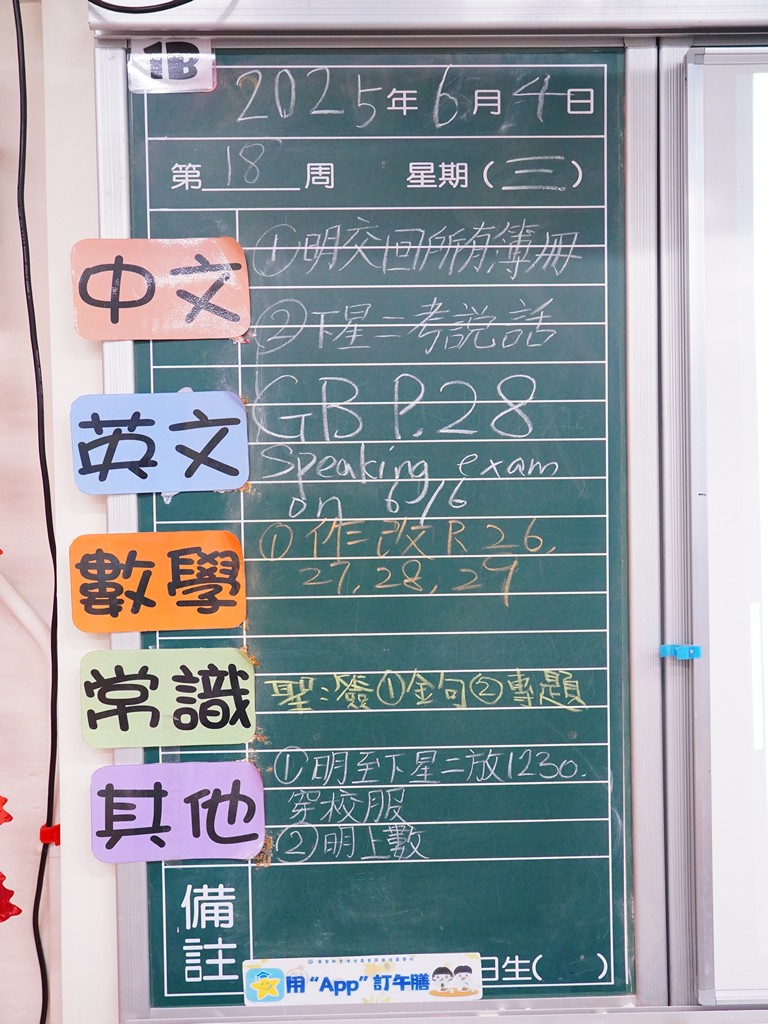 1B
2025年6月4日
第18周 星期(三)
中文
①明交回所有簿冊
②下星二考說話
英文
GB P.28
Speaking exam
on 6/6
數學
①作三改 R26,
27,28,29
常識
聖:簽①金句②專題
其他
①明至下星二放1230.
穿校服
②明上數
備註
用“App”訂午膳
日生( )